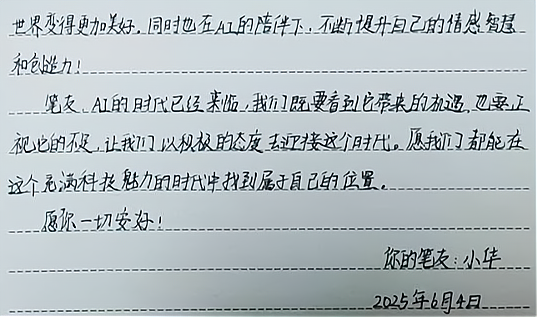 世界变得更加美好。同时也在AI的陪伴下，不断提升自己的情感智慧
和创造力！
笔友，AI的时代已经来临，我们既要看到它带来的机遇，也要正
视它的不足，让我们以积极的态度去迎接这个时代。愿我们都能在
这个充满科技魅力的时代中找到属于自己的位置。
愿你一切安好！
你的笔友：小华
2025年6月4日